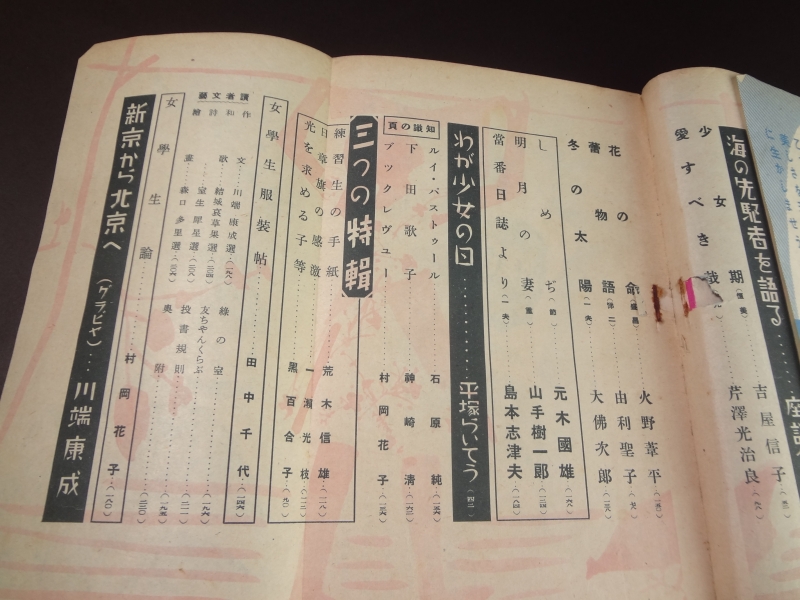 海の先駆者を語る
少女期
吉屋信子
愛すべき
芹澤光治良
花の命
火野葦平
薔物語
由利聖子
冬の太陽
大佛次郎
しめぢ
元木國雄
明月の妻
山手樹一郎
當番日誌より
島本志津夫
わが少女の日
平塚らいてう
知識の頁
ルイ・パストゥール
石原純
下田歌子
神崎清
ブックレヴユー
村岡花子
三つの特輯
練習生の手紙
荒木信雄
日章旗の感激
一瀬光枝
光を求める子等
黒百合子
女學生服裝帖
田中千代
讀者文藝
作和詩繪
文 川端康成選
歌 結城哀草果選
室生犀星選
森口多里選
綠の室
友ちやんくらぶ
投書規則
奥附
女學生論
村岡花子
新京から北京へ(グラビヤ)
川端康成